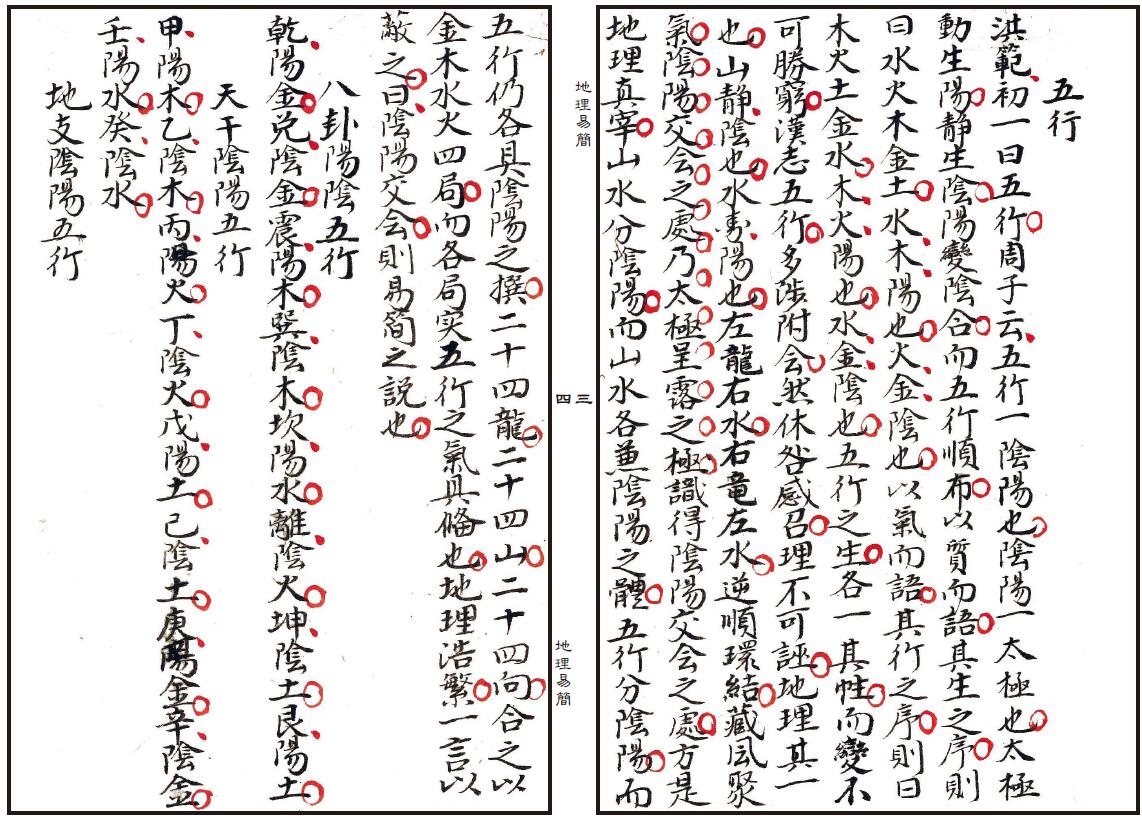 五行
洪範初一曰五行周子云五行一陰陽也陰陽一太極也太極
動生陽静生陰陽變陰合而五行順布以質而語其生之序則
曰水火木金土水木陽也火金陰也以氣而語其行之序則曰
木火土金水木火陽也水金陰也五行之生各一其性而變不
可勝窮漢志五行多涉附会然休咎感召理不可誣地理其一
也山静陰也水動陽也左龍右水右竜左水逆順環結藏風聚
氣陰陽交会之處乃太極呈露之極識得陰陽交会之處方是
地理真宰山水分陰陽而山水各兼陰陽之體五行分陰陽而
地理易簡
三
四
地理易簡
五行仍各具陰陽之撰二十四龍二十四山二十四向合之以
金木水火四局而各局实五行之氣具俻也地理浩繁一言以
蔽之曰陰陽交会則易簡之説也
八卦陽陰五行
乾陽金兑陰金震陽木巽陰木坎陽水離陰火坤陰土艮陽土
天干陰陽五行
甲陽木乙陰木丙陽火丁陰火戊陽土己陰土庚陽金辛陰金
壬陽水癸陰水
地支陰陽五行